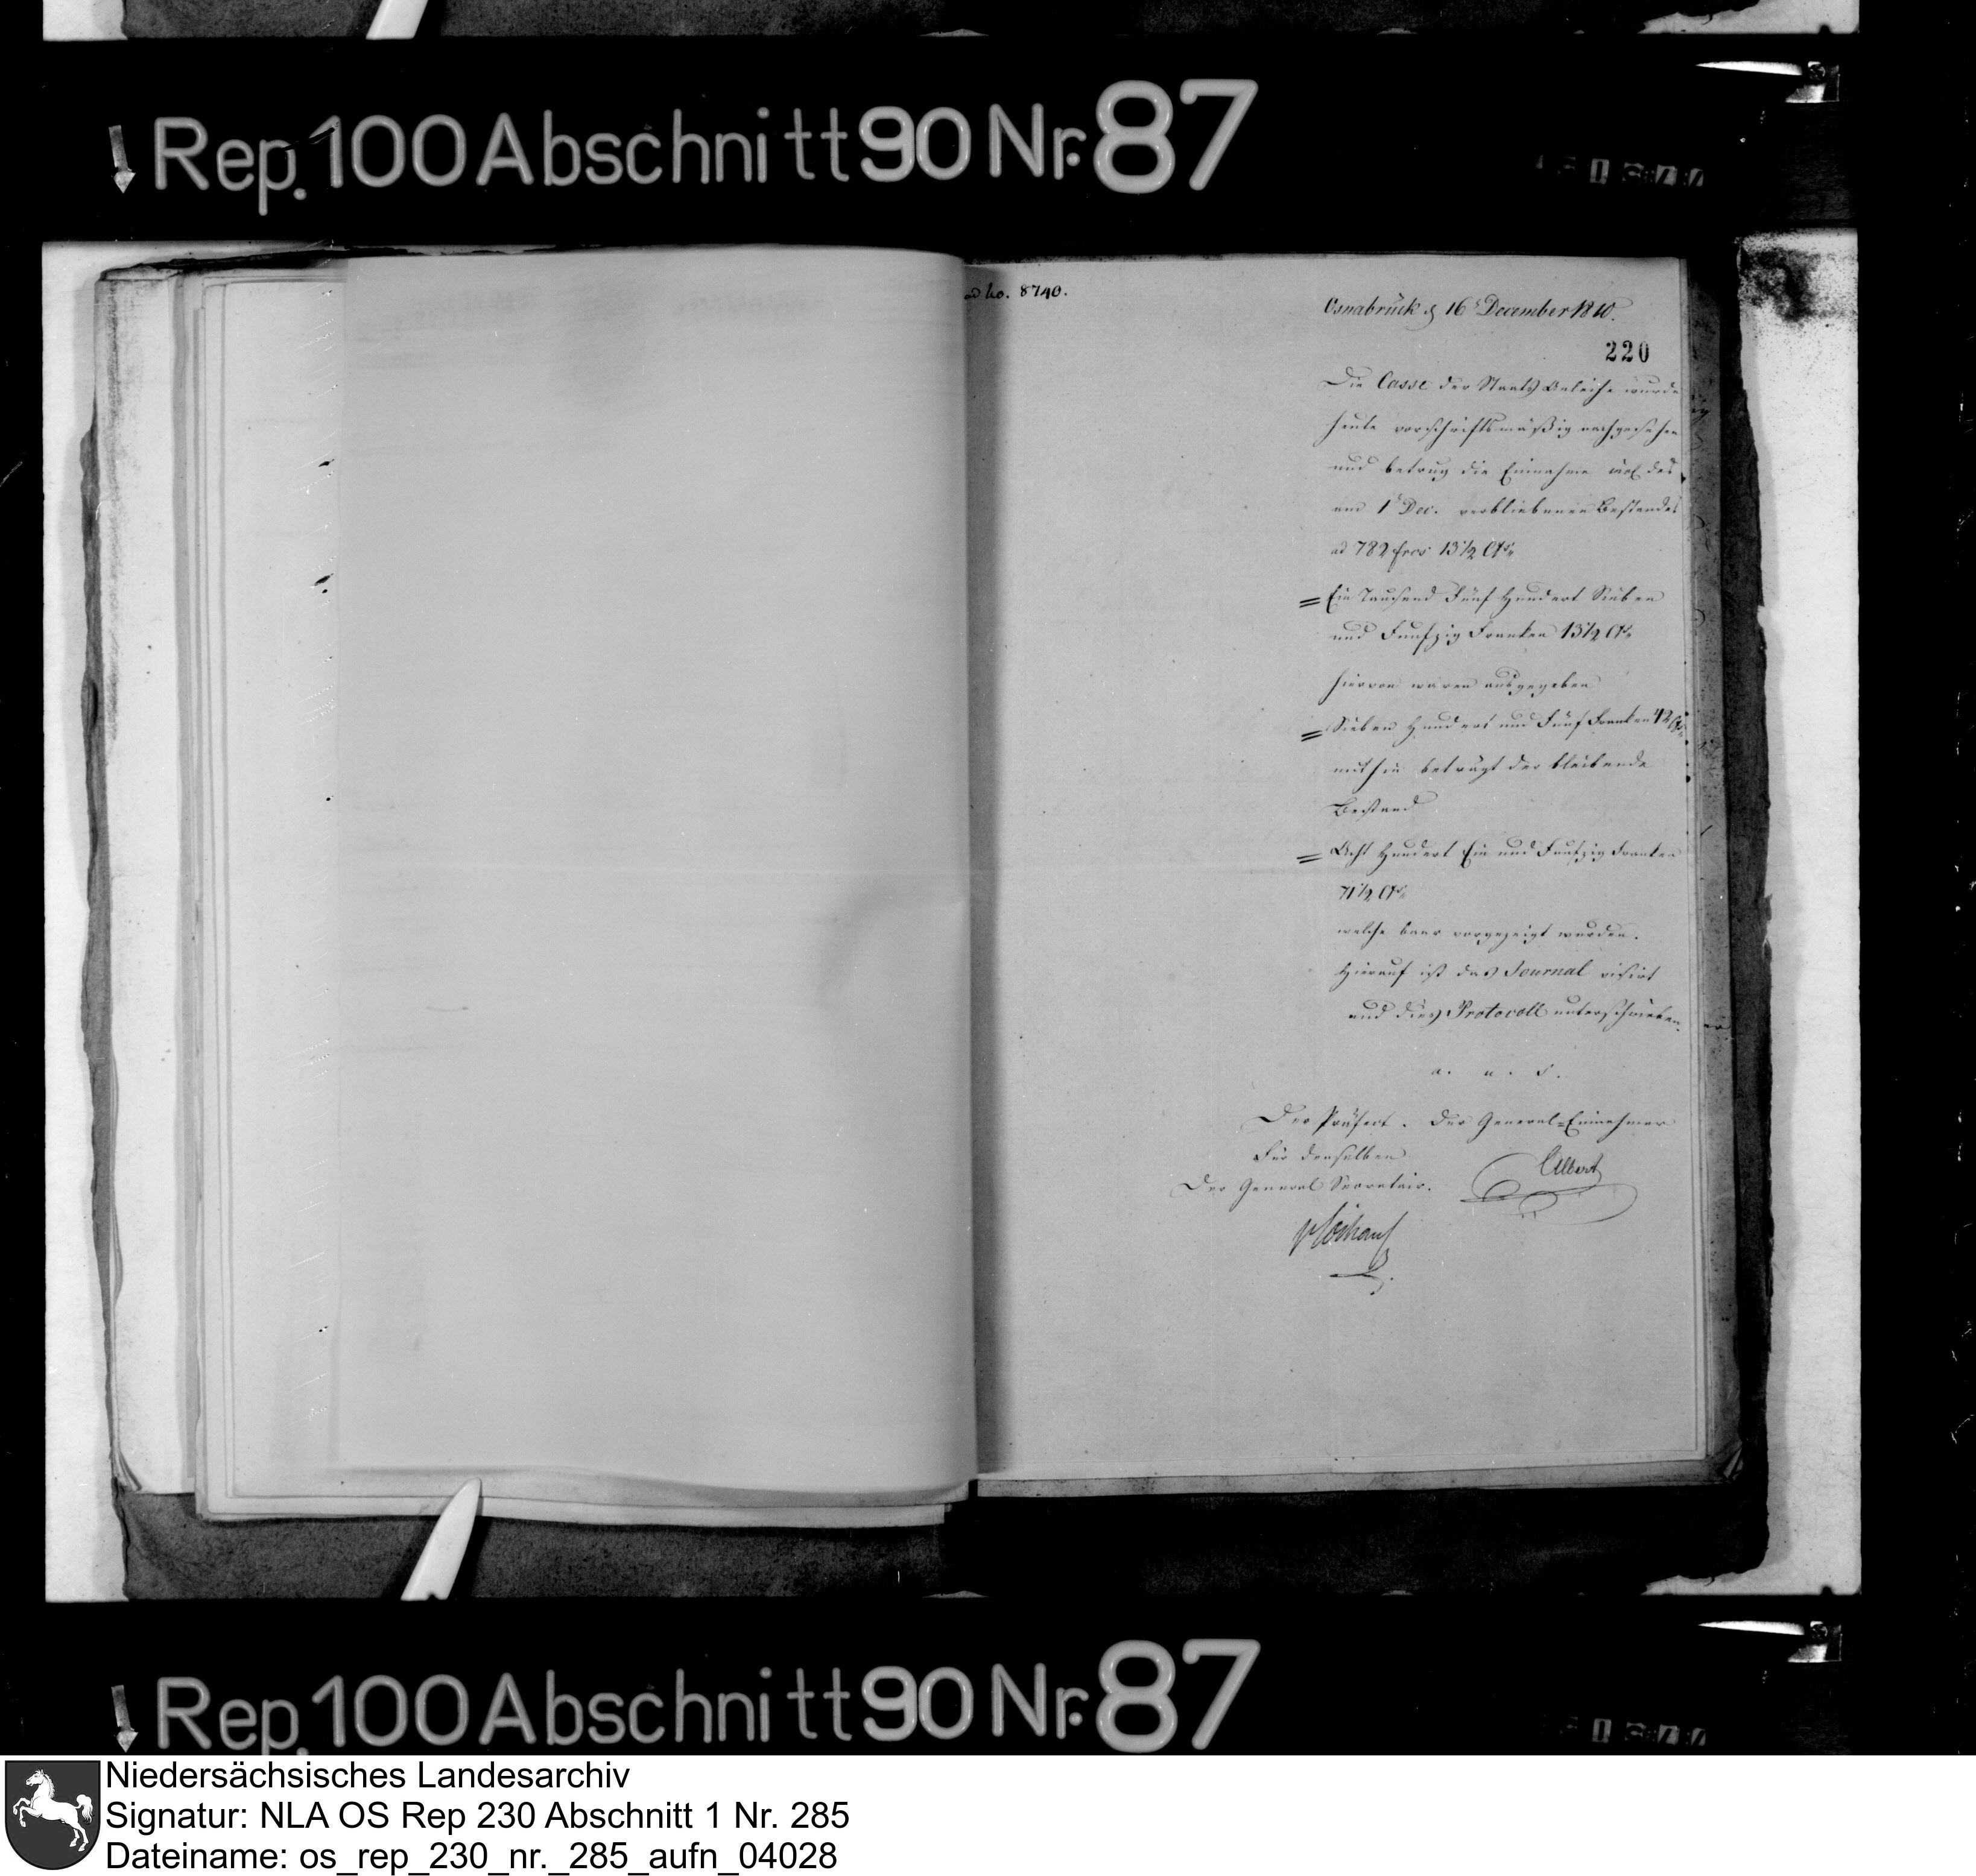 Rep. 100 Abschnitt 90 Nr. 87
ad No. 8740.
Osnabrück d 16t December 1810.
220
Die Casse der Staats Anleihe wurde
heute vorschriftsmäßig nachgesehen
und betrug die Einnahme incl des
am 1t Dec. verbliebenen Bestandes
ad 782 frcs 13 1/2 Cts.
= Ein Tausend Fünf Hundert Sieben
und Funfzig Franken 13 1/2 Cts.
hiervon waren ausgegeben
= Sieben Hundert und Fünf Franken 42 Cts.
mithin beträgt der bleibende
Bestand
= Acht Hundert Ein und Funfzig Franken
71 1/2 Cts.
welche baar vorgezeigt wurden.
Hierauf ist das Journal visirt
und dies Protocoll unterschrieben.
a. u. s.
Der Präfect. Der General=Einnehmer
Für denselben
Albert
Der General Secretair.
Rep. 100 Abschnitt 90 Nr. 87
Niedersächsisches Landesarchiv
Signatur: NLA OS Rep 230 Abschnitt 1 Nr. 285
Dateiname: os_rep_230_nr._285_aufn_04028